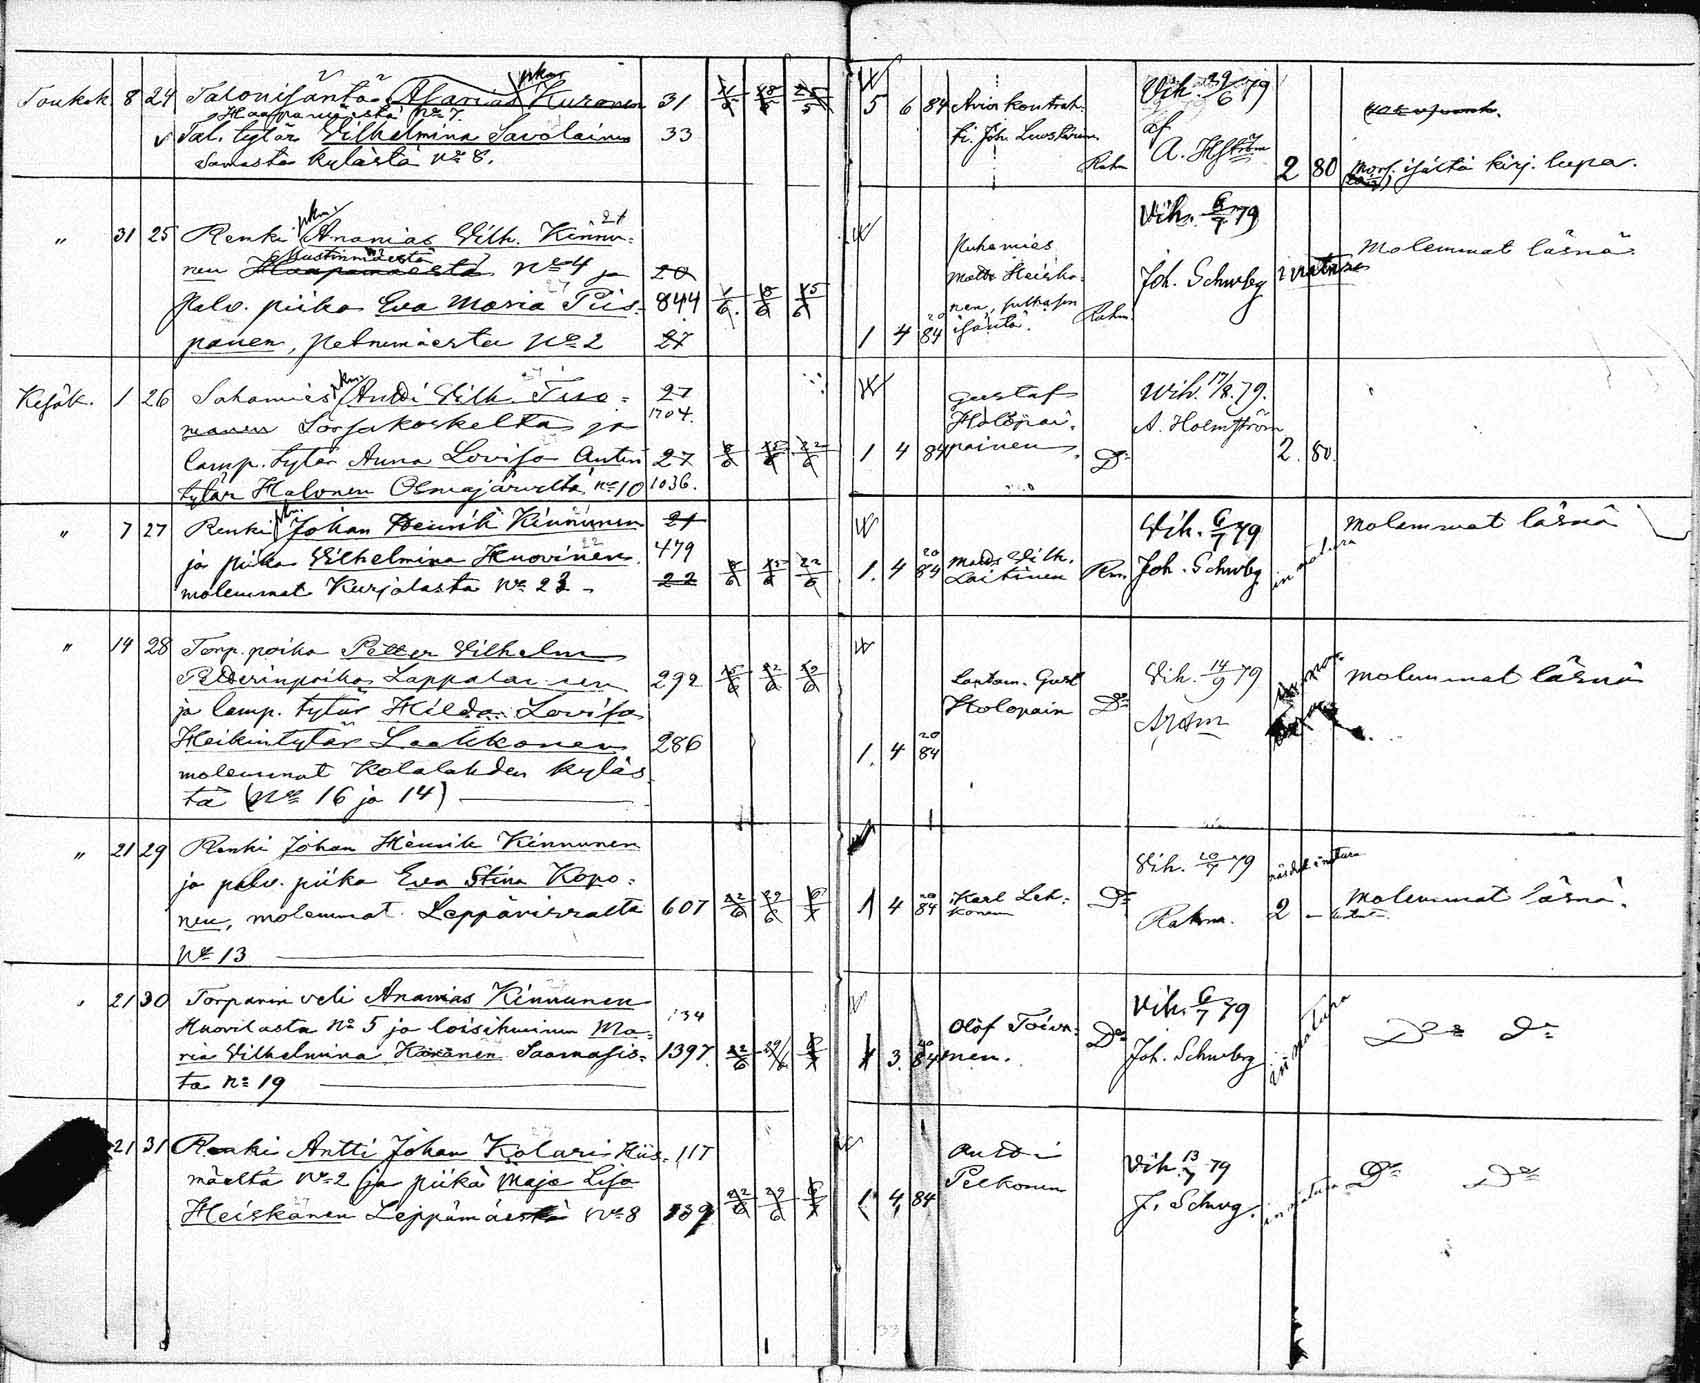 Toukok. 8 24 Talonisäntä Ananias Kuronen 31
Haapamäestä No 7.
Tal. tytär Vilhelmina Savolainen 33
Samasta kylästä No 8.
5 6 84 Aviokontrah.
Rahm
Vih. 29/6 79
af
A. Hllström
2 80
isältä kirj. lupa.
" 31 25 Renki Ananias Vilh. Kinnu=
nen Mustinmäestä Haapamäestä No 4 ja 20
Palv. piika Eva Maria Piis= 844
panen, Petrumäestä No 2 27
1 4 84
Puhemies
Matts Heiska-
nen,
isäntä.
Rahm.
Vih. 6/7 79
Joh. Schwbg
in natura
Molemmat läsnä
Kesäk. 1 26 Sahamies Antti Vilh. Tiso= 27
manen Sorsakoskelta ja 1704.
lamp. tytär Anna Lovisa Antin 27
tytär Halonen Osmajärveltä No 10 1036.
1 4 84
Gustaf
Holopai-
nainen
Do
Vih. 17/8 79.
A. Holmström
2. 80.
" 7 27 Renki Johan Henrik Kinnunen 21
ja piika Vilhelmina Huovinen 479
molemmat Kurjalasta No 23 22
1. 4 84
Matts Vilh.
Laitinen
Rm.
Vih. 6/7 79
Joh. Schwbg
in natura
Molemmat läsnä
" 14 28 Torp. poika Petter Vilhelm
Petterinpoika Lappalainen 292
ja lamp. tytär Hilda Lovisa
Heikintytär Laakkonen 286
molemmat Kotalahden kyläs
tä (No 16 ja 14)
1. 4 84
Lautam. Gust
Holopain
Do
Vih. 14/9 79
Molemmat läsnä
" 21 29 Renki Johan Henrik Kinnunen
ja palv. piika Eva Stina Kopo=
nen, molemmat Leppävirralta 607
No 13
22/6 29/6 6/7
1 4 84
Karl Leh-
konen
Do
Vih. 20/7 79
Rahm.
2 –
Molemmat läsnä.
" 21 30 Torparin veli Ananias Kinnunen 134
Huovilasta No 5 ja loisihminen Ma=
ria Vilhelmina Karanen Saamasis= 1397.
ta No 19
22/6 29/6 6/7
1 3. 84
Olof Toiva-
nen.
Do
Vih. 6/7 79
Joh. Schwbrg
in natura
Do Do
21 31 Renki Antti Johan Kolari Hiis- 117
mäeltä No 2 ja piika Maja Lisa
Heiskanen Leppämäestä No 8 139
22/6 29/6 6/7
1. 4, 84
Antti
Pelkonen
Vih. 13/7 79
J. Schwbg.
in natura
Do Do